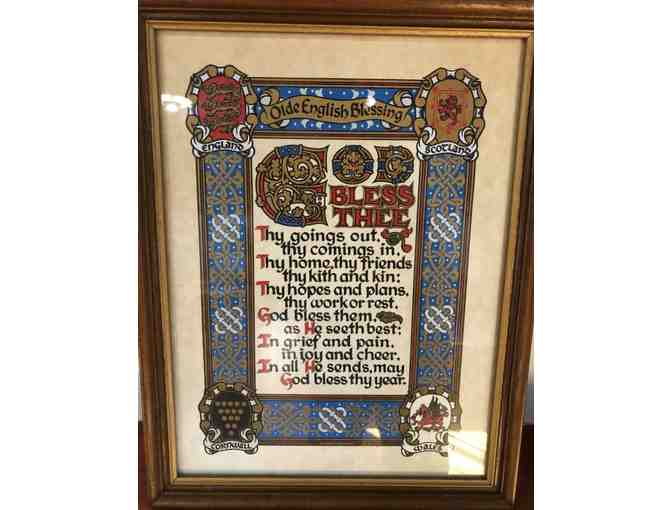 Olde English Blessing
ENGLAND
SCOTLAND
GOD
BLESS
THEE
Thy goings out,
thy comings in,
Thy home, thy friends
thy kith and kin:
Thy hopes and plans,
thy work or rest,
God bless them,
as He seeth best:
In grief and pain,
in joy and cheer,
In all He sends, may
God bless thy year.
CORNWALL
WALES